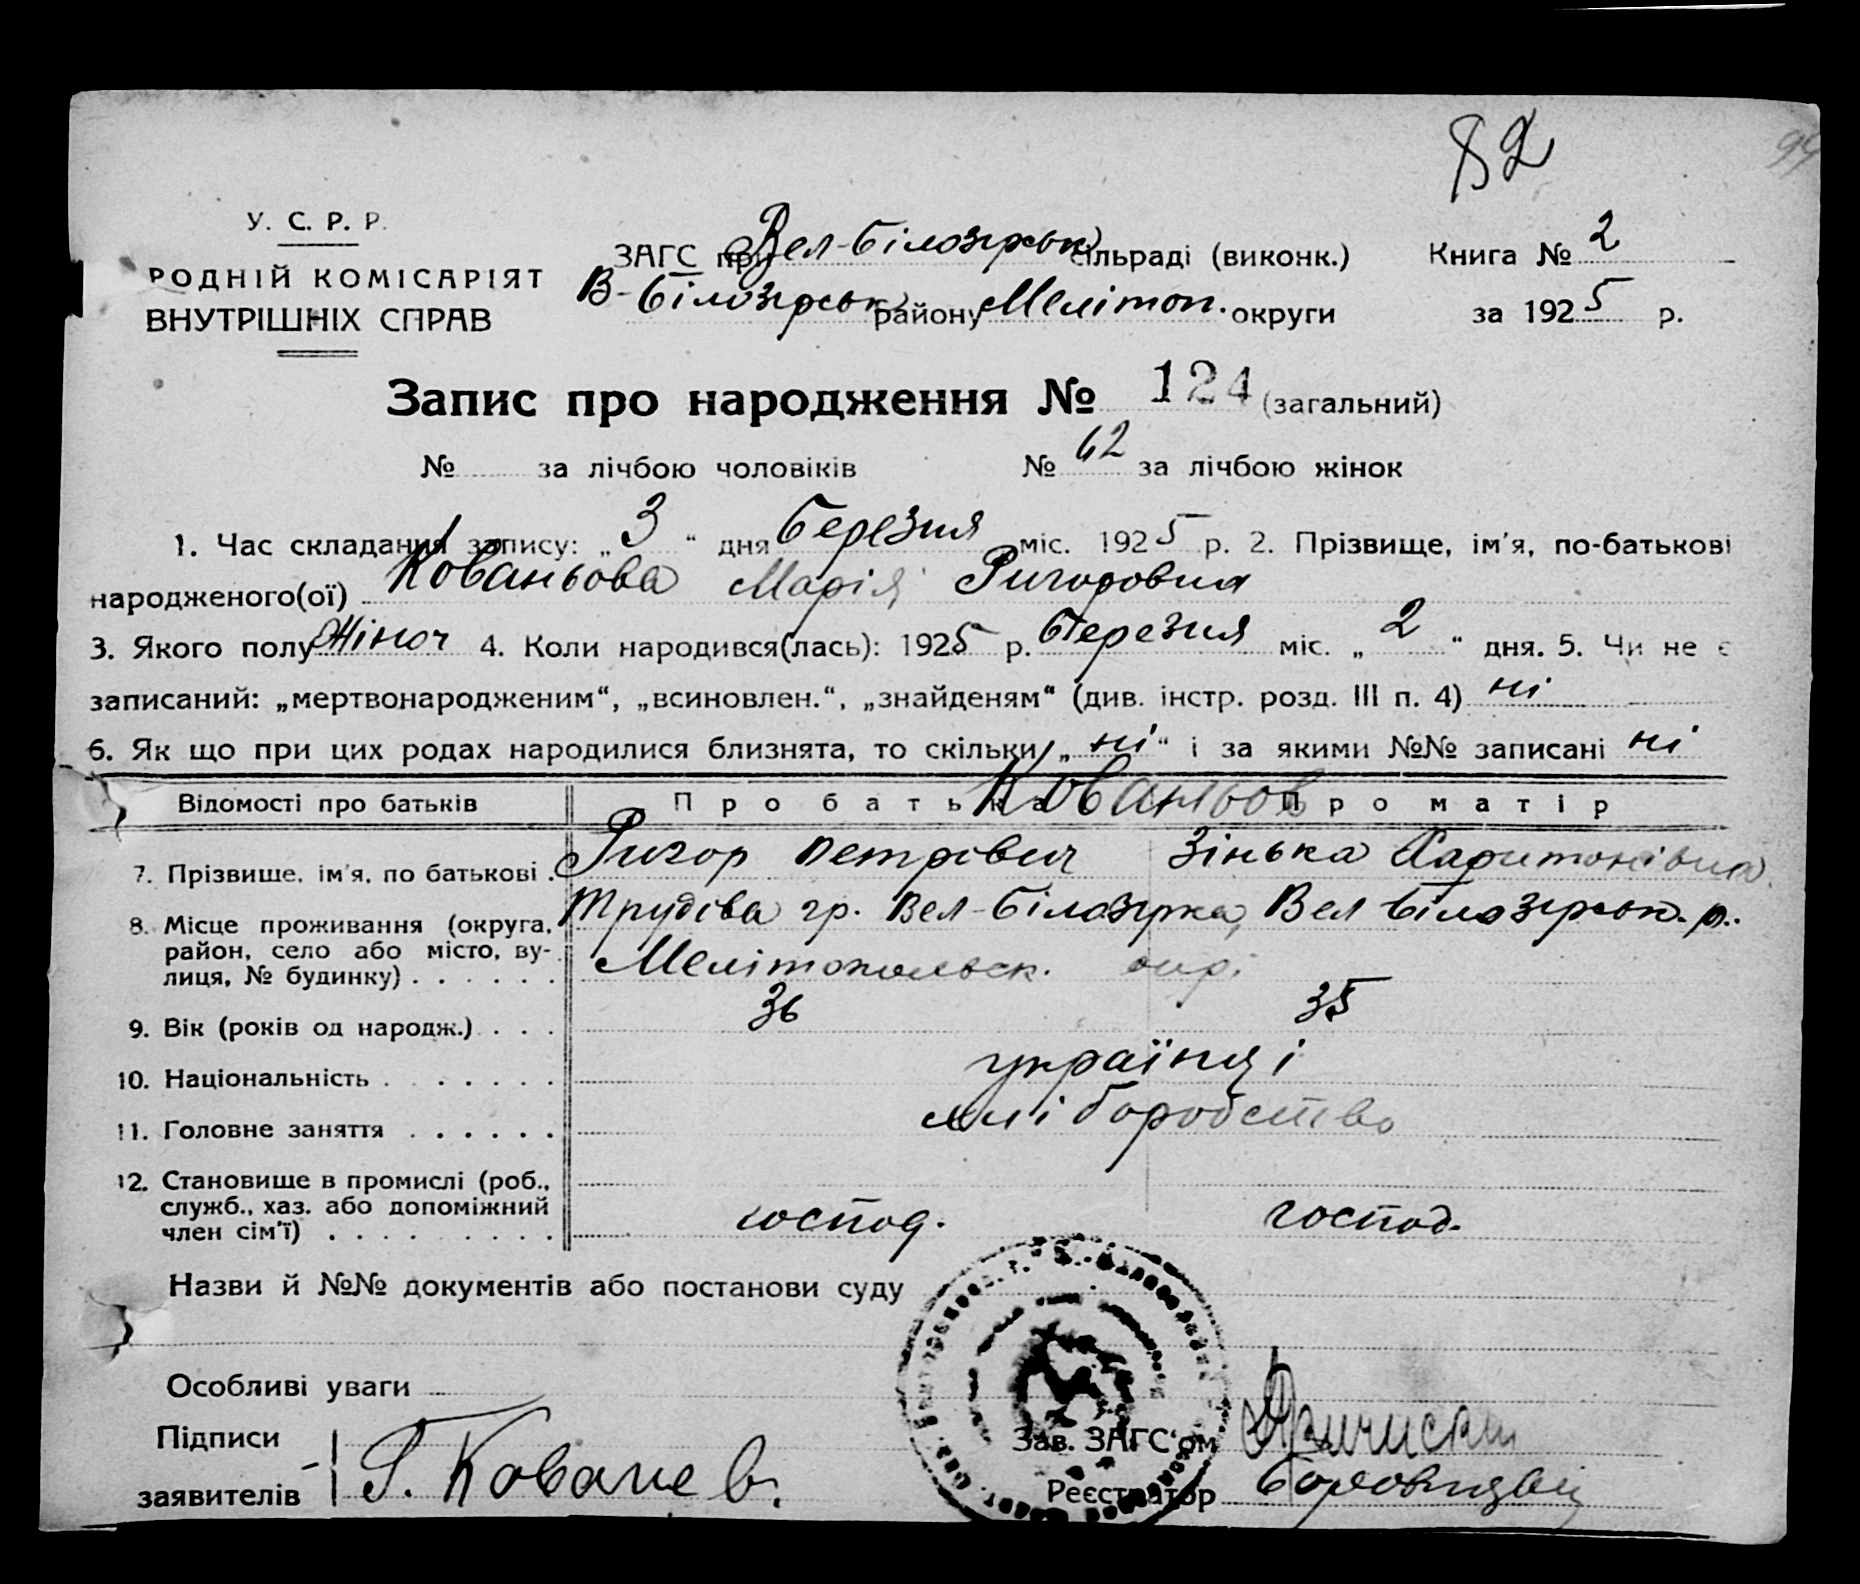 82
99
У. С. Р. Р.
РОДНІЙ КОМІСАРІЯТ
ВНУТРІШНІХ СПРАВ
ЗАГС при Вел-Білозірськ сільраді (виконк.) Книга № 2
В-Білозірськ району Мелітоп. округи за 1925 р.
Запис про народження № 124 (загальний)
№ за лічбою чоловіків № 62 за лічбою жінок
1. Час складання запису: „3“ дня березня міс. 1925 р. 2. Прізвище, ім'я, по-батькові
народженого(ої) Кованьова Марія Ригоровна
3. Якого полу жіноч 4. Коли народився(лась): 1925 р. березня міс. „2“ дня. 5. Чи не є
записаний: „мертвонародженим“, „всиновлен.“, „знайденям“ (див. інстр. розд. III п. 4) ні
6. Як що при цих родах народилися близнята, то скільки „ні“ і за якими №№ записані ні
Відомості про батьків Про батька Кованьов Про матір
7. Прізвище, ім'я, по батькові . Ригор Петрович Зінька Харитонівна
8. Місце проживання (округа, район, село або місто, вулиця, № будинку) . . . . . . Трудова гр. Вел-Білозірка, Вел Білозірськ. р.
Мелітопольск. окр.
9. Вік (років од народж.) . . . 36 35
10. Національність . . . . . . . українці
11. Головне заняття . . . . . . хліборобство
12. Становище в промислі (роб., служб., хаз. або допоміжний член сім'ї) . . . . . . . . . господ. господ.
Назви й №№ документів або постанови суду
Особливі уваги
Підписи
заявителів Г. Ковалев.
Зав. ЗАГС'ом
Реєстратор